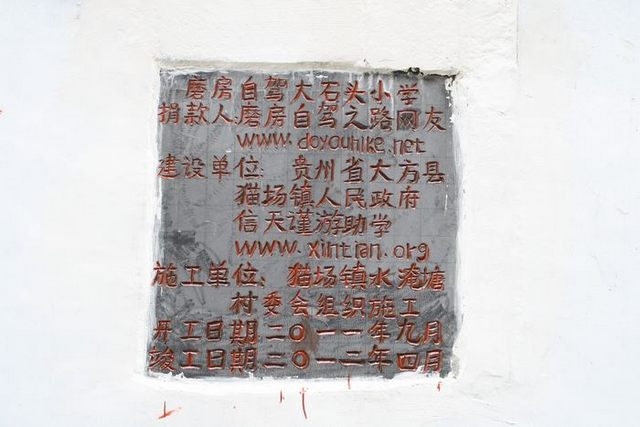 磨房自驾大石头小学
捐款人:磨房自驾之路网友
www.doyouhike.net
建设单位: 贵州省大方县
猫场镇人民政府
信天谨游助学
www.xintian.org
施工单位: 猫场镇水淹塘
村委会组织施工
开工日期二〇一一年九月
竣工日期二〇一二年四月